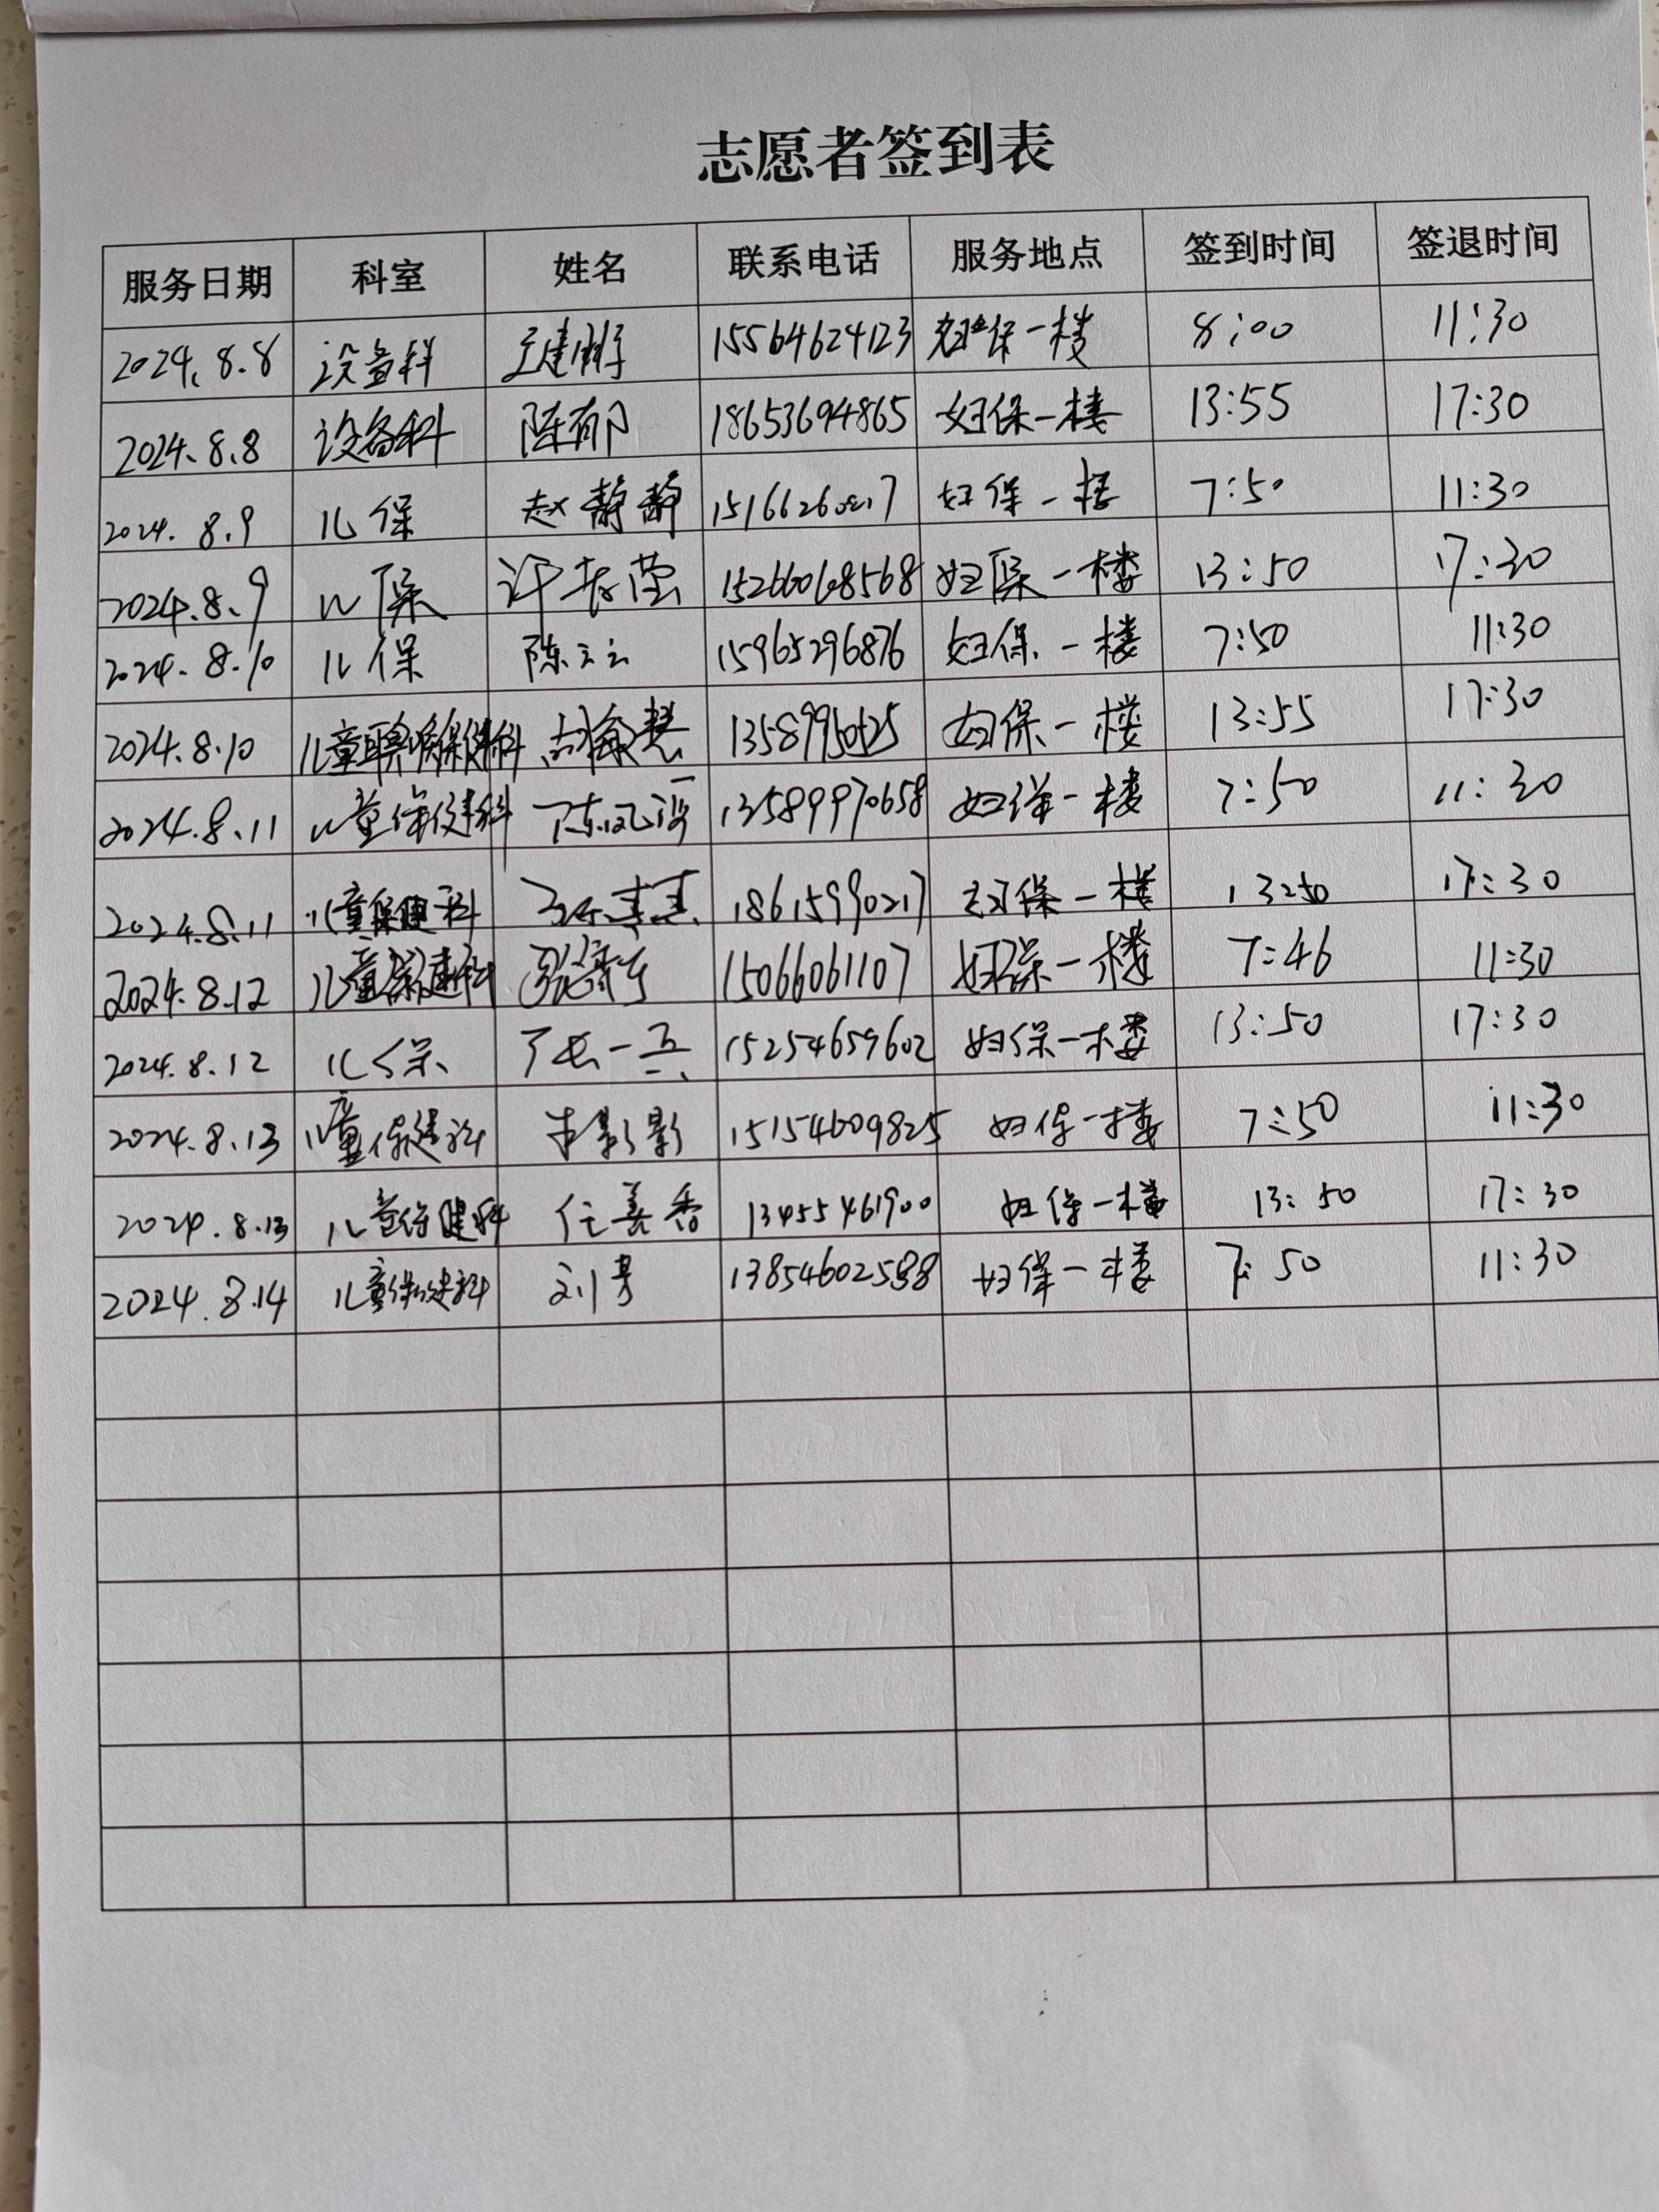 志愿者签到表
服务日期 科室 姓名 联系电话 服务地点 签到时间 签退时间
2024.8.8 设备科 15564624123 妇保一楼 8:00 11:30
2024.8.8 设备科 陈郁 18653694865 妇保一楼 13:55 17:30
2024.8.9 儿保 赵静静 妇保一楼 7:50 11:30
2024.8.9 儿保 许 15266068568 妇保一楼 13:50 17:30
2024.8.10 儿保 陈云云 15965296876 妇保一楼 7:50 11:30
2024.8.10 妇保一楼 13:55 17:30
2024.8.11 儿童保健科 13589970658 妇保一楼 7:50 11:30
2024.8.11 儿童保健科 18615990217 妇保一楼 13:50 17:30
2024.8.12 儿童保健科 15066061107 妇保一楼 7:46 11:30
2024.8.12 儿保 15254659602 妇保一楼 13:50 17:30
2024.8.13 儿童保健科 15154609825 妇保一楼 7:50 11:30
2024.8.13 儿童保健科 任美香 13455461900 妇保一楼 13:50 17:30
2024.8.14 儿童保健科 刘 妇保一楼 7:50 11:30